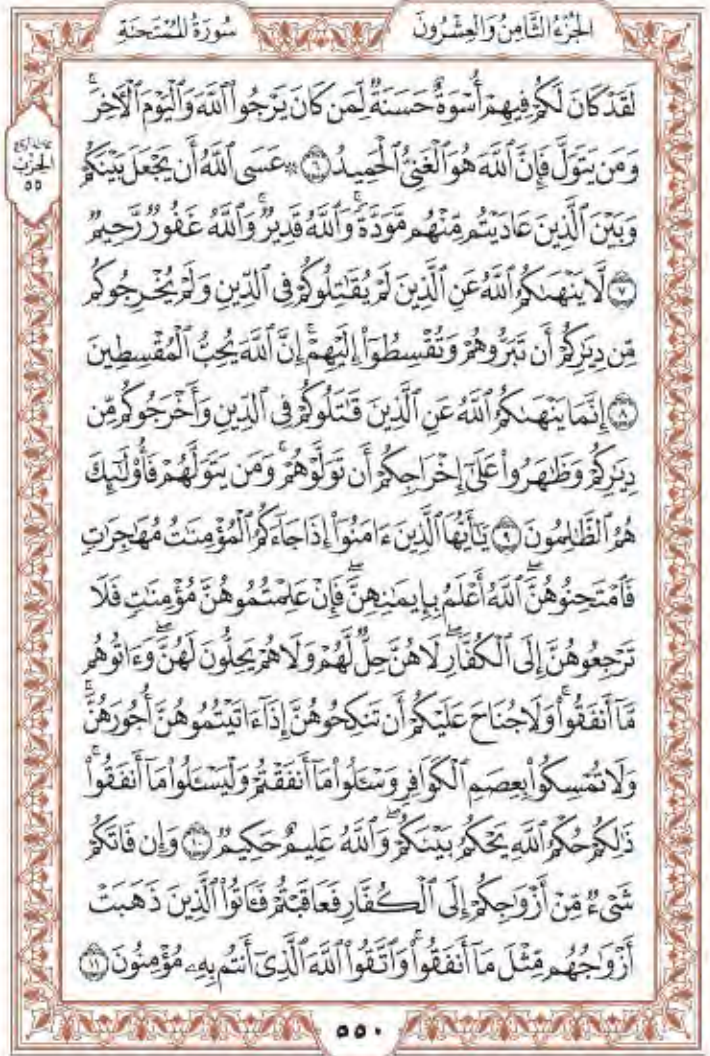 الجُزْءُ الثَّامِنُ وَالعِشْرُونَ
سُورَةُ المُمْتَحنَةِ
لَقَدْ كَانَ لَكُمْ فِيهِمْ أُسْوَةٌ حَسَنَةٌ لِّمَن كَانَ يَرْجُوا۟ ٱللَّهَ وَٱلْيَوْمَ ٱلْـَٔاخِرَ ۚ
وَمَن يَتَوَلَّ فَإِنَّ ٱللَّهَ هُوَ ٱلْغَنِىُّ ٱلْحَمِيدُ ٦ ۞ عَسَى ٱللَّهُ أَن يَجْعَلَ بَيْنَكُمْ
وَبَيْنَ ٱلَّذِينَ عَادَيْتُم مِّنْهُم مَّوَدَّةً ۚ وَٱللَّهُ قَدِيرٌ ۚ وَٱللَّهُ غَفُورٌ رَّحِيمٌ
٧ لَّا يَنْهَىٰكُمُ ٱللَّهُ عَنِ ٱلَّذِينَ لَمْ يُقَـٰتِلُوكُمْ فِى ٱلدِّينِ وَلَمْ يُخْرِجُوكُم
مِّن دِيَـٰرِكُمْ أَن تَبَرُّوهُمْ وَتُقْسِطُوٓا۟ إِلَيْهِمْ ۚ إِنَّ ٱللَّهَ يُحِبُّ ٱلْمُقْسِطِينَ
٨ إِنَّمَا يَنْهَىٰكُمُ ٱللَّهُ عَنِ ٱلَّذِينَ قَـٰتَلُوكُمْ فِى ٱلدِّينِ وَأَخْرَجُوكُم مِّن
دِيَـٰرِكُمْ وَظَـٰهَرُوا۟ عَلَىٰٓ إِخْرَاجِكُمْ أَن تَوَلَّوْهُمْ ۚ وَمَن يَتَوَلَّهُمْ فَأُو۟لَـٰٓئِكَ
هُمُ ٱلظَّـٰلِمُونَ ٩ يَـٰٓأَيُّهَا ٱلَّذِينَ ءَامَنُوٓا۟ إِذَا جَآءَكُمُ ٱلْمُؤْمِنَـٰتُ مُهَـٰجِرَٰتٍ
فَٱمْتَحِنُوهُنَّ ۖ ٱللَّهُ أَعْلَمُ بِإِيمَـٰنِهِنَّ ۖ فَإِنْ عَلِمْتُمُوهُنَّ مُؤْمِنَـٰتٍ فَلَا
تَرْجِعُوهُنَّ إِلَى ٱلْكُفَّارِ ۖ لَا هُنَّ حِلٌّ لَّهُمْ وَلَا هُمْ يَحِلُّونَ لَهُنَّ ۖ وَءَاتُوهُم
مَّآ أَنفَقُوا۟ ۚ وَلَا جُنَاحَ عَلَيْكُمْ أَن تَنكِحُوهُنَّ إِذَآ ءَاتَيْتُمُوهُنَّ أُجُورَهُنَّ ۚ
وَلَا تُمْسِكُوا۟ بِعِصَمِ ٱلْكَوَافِرِ وَسْـَٔلُوا۟ مَآ أَنفَقْتُمْ وَلْيَسْـَٔلُوا۟ مَآ أَنفَقُوا۟ ۚ
ذَٰلِكُمْ حُكْمُ ٱللَّهِ يَحْكُمُ بَيْنَكُمْ ۖ وَٱللَّهُ عَلِيمٌ حَكِيمٌ ١٠ وَإِن فَاتَكُمْ
شَىْءٌ مِّنْ أَزْوَٰجِكُمْ إِلَى ٱلْكُفَّارِ فَعَاقَبْتُمْ فَـَٔاتُوا۟ ٱلَّذِينَ ذَهَبَتْ
أَزْوَٰجُهُم مِّثْلَ مَآ أَنفَقُوا۟ ۚ وَٱتَّقُوا۟ ٱللَّهَ ٱلَّذِىٓ أَنتُم بِهِۦ مُؤْمِنُونَ ١١
الحِزْب
٥٥
٥٥٠